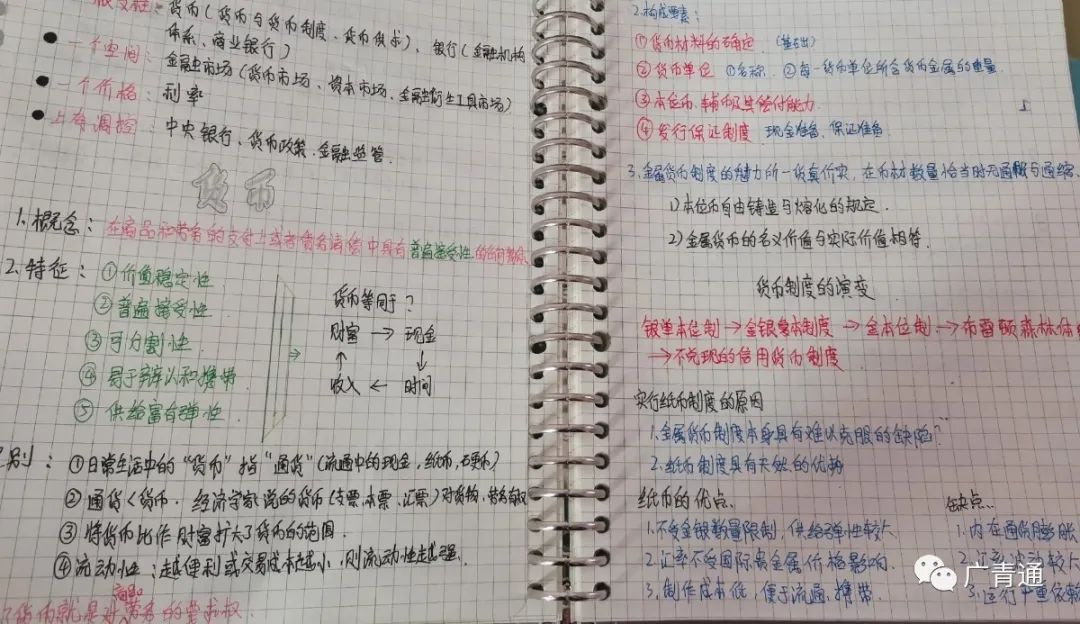 货币(货币与货币制度、货币供求)、银行(金融机构
体系、商业银行)
一个空间:金融市场(货币市场、资本市场、金融衍生工具市场)
一个价格:利率
上有调控:中央银行、货币政策、金融监管.
货币
1.概念:在商品和劳务的支付上或者债务清偿中具有普遍接受性的
2.特征:①价值稳定性
②普遍接受性.
③可分割性.
④易于辨认和携带.
⑤供给富有弹性.
货币等同于?
财富→现金
↑ ↓
收入←时间
别:①日常生活中的“货币”指“通货”(流通中的现金,纸币,硬币)
②通货<货币.经济学家说的货币(支票、本票、汇票)对货物,劳务有
③将货币比作财富扩大了货币的范围.
④流动性:越便利或交易成本越小,则流动性越强.
货币就是对商品劳务的
2.构成要素:
①货币材料的确定.(基础)
②货币单位 ①名称.②每一货币单位所含货币金属的重量.
③本位币、辅币及其偿付能力.
④发行保证制度 现金准备、保证准备.
3.金属货币制度的魅力所一货真价实,在币材数量恰当时无通胀与通缩.
1)本位币自由铸造与熔化的规定.
2)金属货币的名义价值与实际价值相符.
货币制度的演变
银单本位制→金银复本制度→金本位制→布雷顿森林体
→不兑现的信用货币制度
实行纸币制度的原因
1.金属货币制度本身具有难以克服的缺陷?
2.纸币制度具有天然的优势
纸币的优点.
1.不受金银数量限制,供给弹性较大
2.汇率不受国际贵金属价格影响.
3.制作成本低,便于流通、携带.
缺点.
1.内在通货膨胀
2.汇率波动较大
3.运行严重依赖
广青通